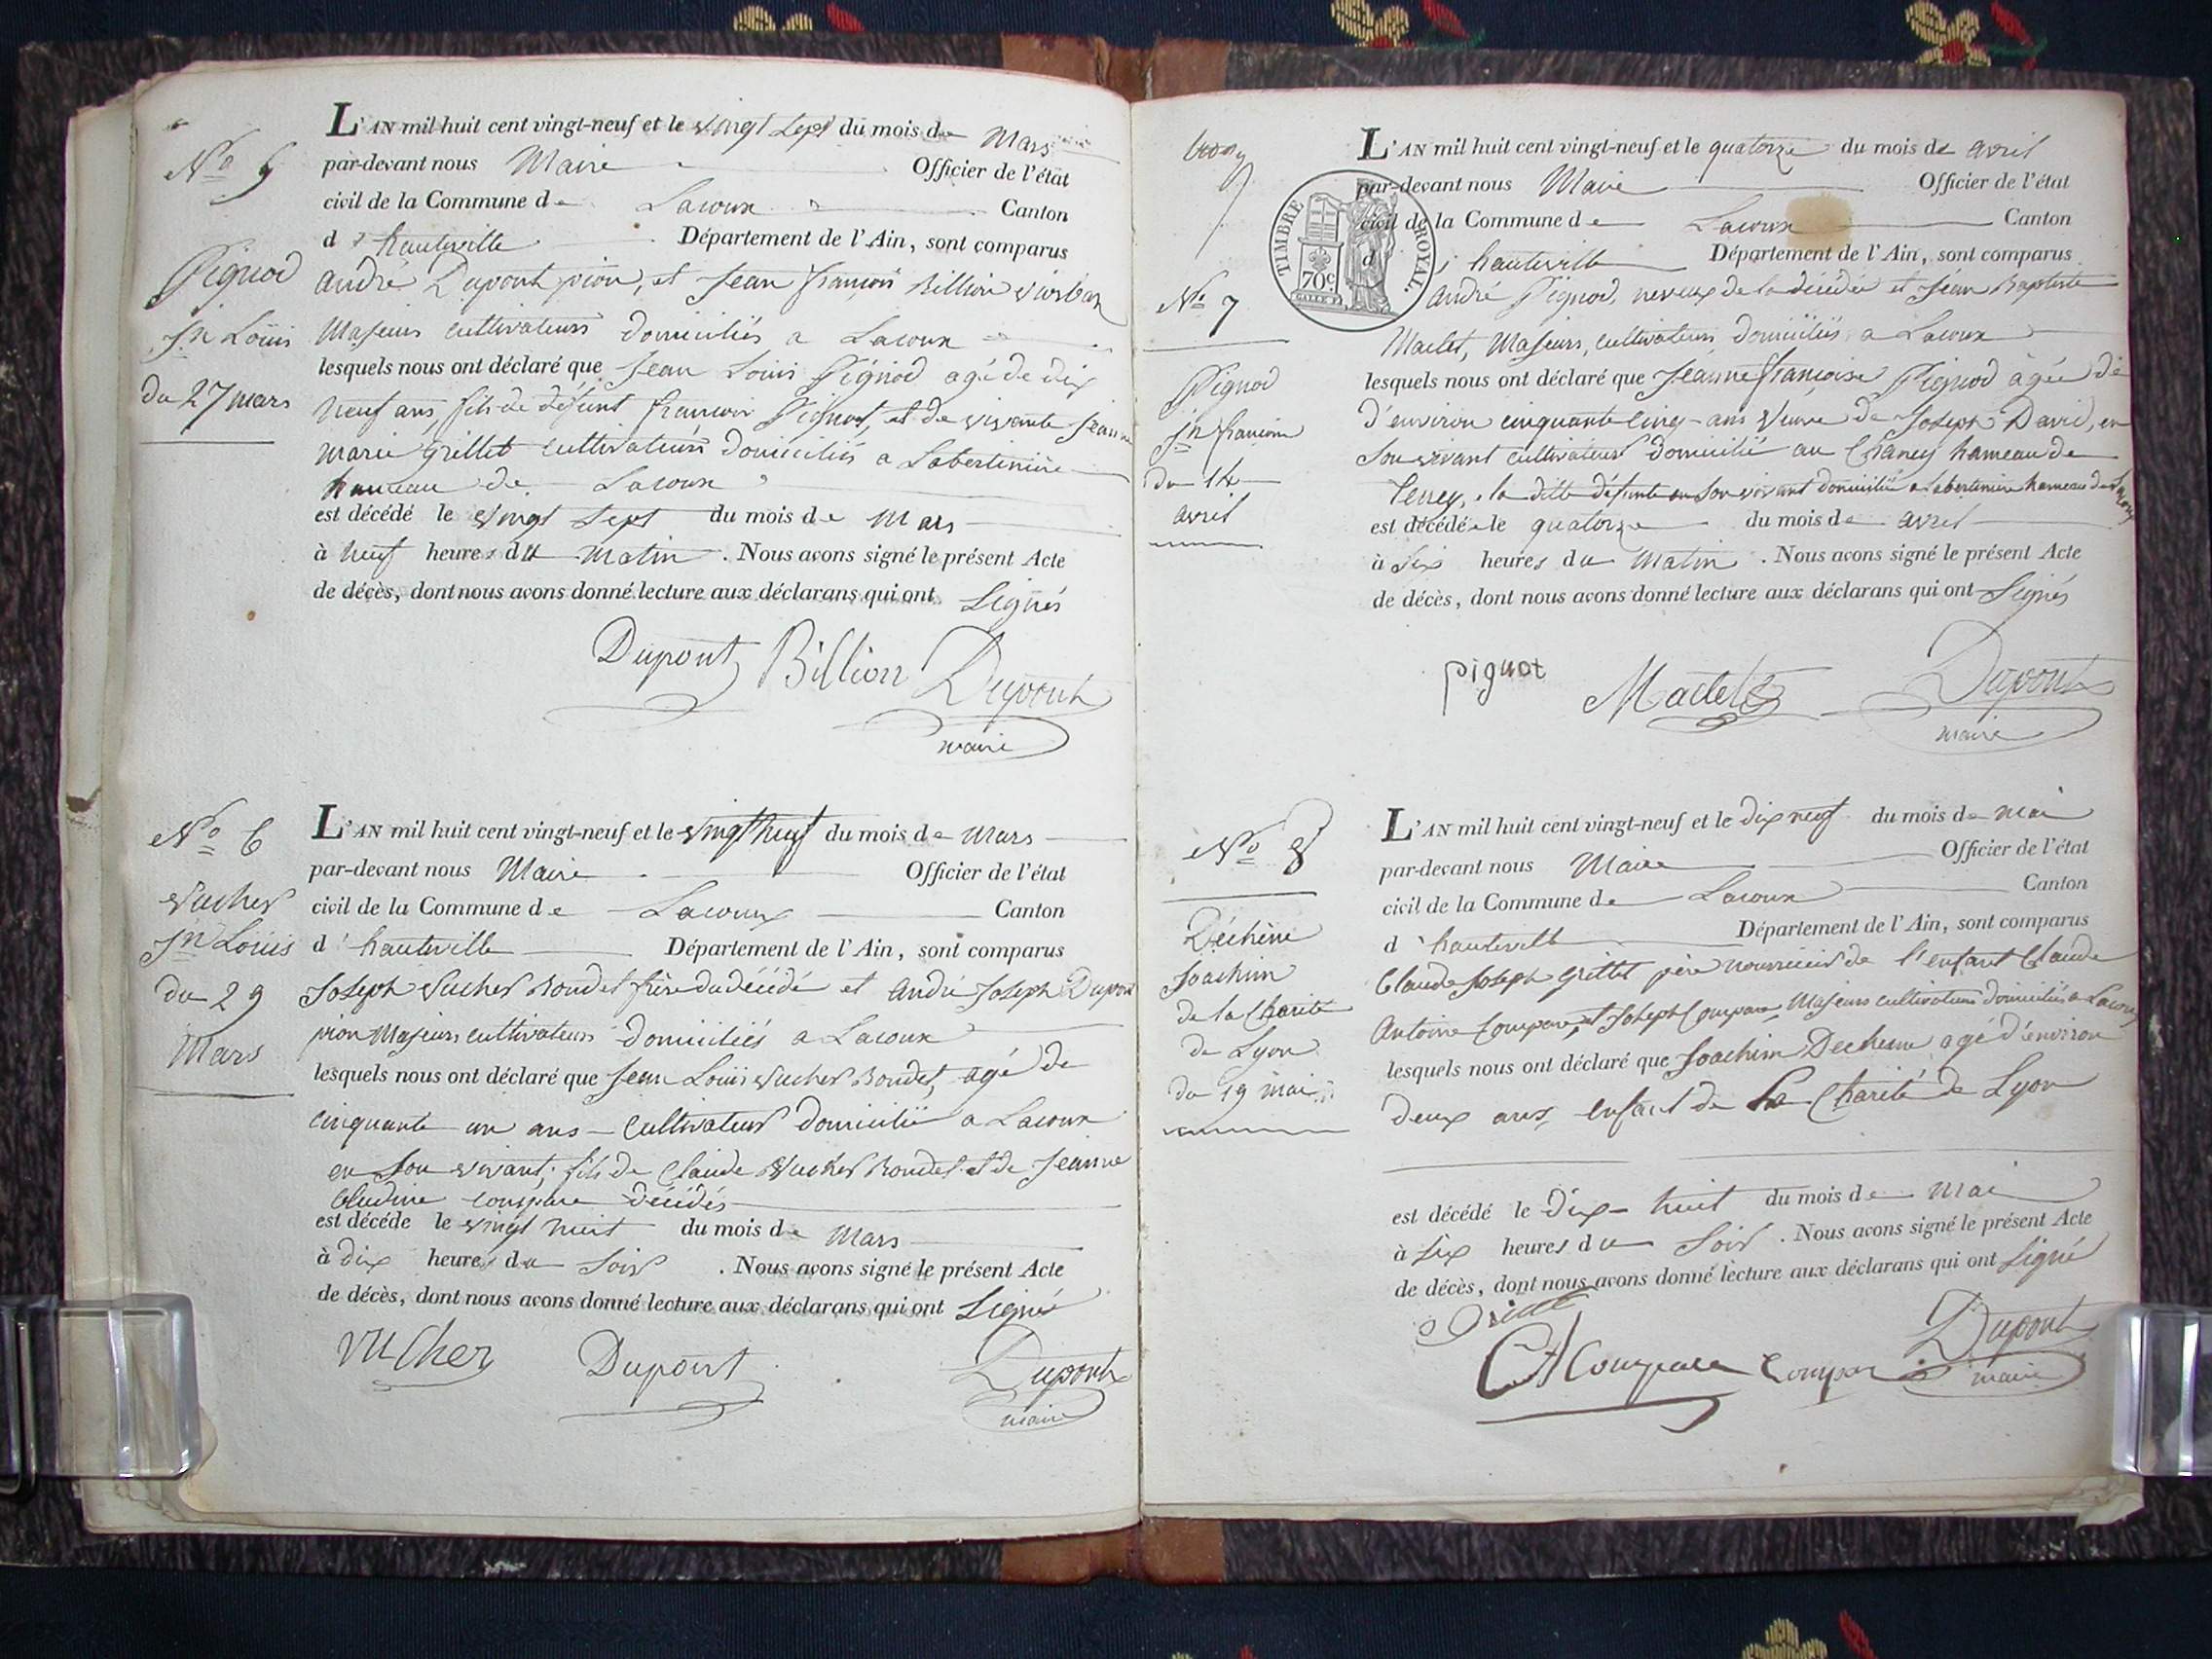 No 5
Pignod
Jn Louis
du 27 mars
L'AN mil huit cent vingt-neuf et le vingt sept du mois de Mars
par-devant nous Maire Officier de l'état
civil de la Commune de Lacoux Canton
d'hauteville Département de l'Ain, sont comparus
andré Dupont pion, et Jean françois Billion
Majeurs cultivateurs domiciliés a Lacoux
lesquels nous ont déclaré que Jean Louis Pignod agé de dix
neuf ans, fils de défunt françois Pignod, et de vivante Jeanne
marie Grillet cultivateurs domiciliés a Labertinière
hameau de Lacoux
est décédé le vingt sept du mois de Mars
à neuf heures du Matin. Nous avons signé le présent Acte
de décès, dont nous avons donné lecture aux déclarans qui ont Signés
Dupont Billion Dupont
maire
No 6
Vucher
Jn Louis
du 29
Mars
L'AN mil huit cent vingt-neuf et le vingt neuf du mois de Mars
par-devant nous Maire Officier de l'état
civil de la Commune de Lacoux Canton
d'hauteville Département de l'Ain, sont comparus
Joseph Vucher Boudet frère du décédé et andré Joseph Dupont
pion Majeurs cultivateurs domiciliés a Lacoux
lesquels nous ont déclaré que Jean Louis Vucher Boudet, agé de
cinquante un ans cultivateur domicilié a Lacoux
en son vivant, fils de Claude Vucher Boudet et de Jeanne
Claudine compare décédés
est décédé le vingt huit du mois de Mars
à dix heures du Soir. Nous avons signé le présent Acte
de décès, dont nous avons donné lecture aux déclarans qui ont Signés
VuCher Dupont Dupont
maire
TIMBRE ROYAL
70c
No 7
Pignod
Jn françoise
du 14
avril
L'AN mil huit cent vingt-neuf et le quatorze du mois de avril
par-devant nous Maire Officier de l'état
civil de la Commune de Lacoux Canton
d'hauteville Département de l'Ain, sont comparus
andré Pignod, neveux de la décédée et Jean Baptiste
Maclet, Majeurs, cultivateurs domiciliés a Lacoux
lesquels nous ont déclaré que Jeanne françoise Pignod àgée de
d'environ cinquante cinq ans veuve de Joseph David, en
son vivant cultivateur domicilié au Chaney hameau de
Teney, la ditte défunte en son vivant domiciliée a Labertinière hameau de Lacoux
est décédée le quatorze du mois de avril
à six heures du Matin. Nous avons signé le présent Acte
de décès, dont nous avons donné lecture aux déclarans qui ont Signés
pignot Maclet Dupont
maire
No 8
Déchène
Joachim
de la Charité
de Lyon
du 19 mai
L'AN mil huit cent vingt-neuf et le dix neuf du mois de mai
par-devant nous Maire Officier de l'état
civil de la Commune de Lacoux Canton
d'hauteville Département de l'Ain, sont comparus
Claude Joseph Grillet père nourricier de l'enfant Claude
Antoine Compare, et Joseph Compare, Majeurs cultivateurs domiciliés a Lacoux
lesquels nous ont déclaré que Joachim Dechene agé d'environ
deux ans, enfant de La Charité de Lyon
est décédé le dix-huit du mois de Mai
à six heures du Soir. Nous avons signé le présent Acte
de décès, dont nous avons donné lecture aux déclarans qui ont Signé
CA Compare Compar Dupont
maire